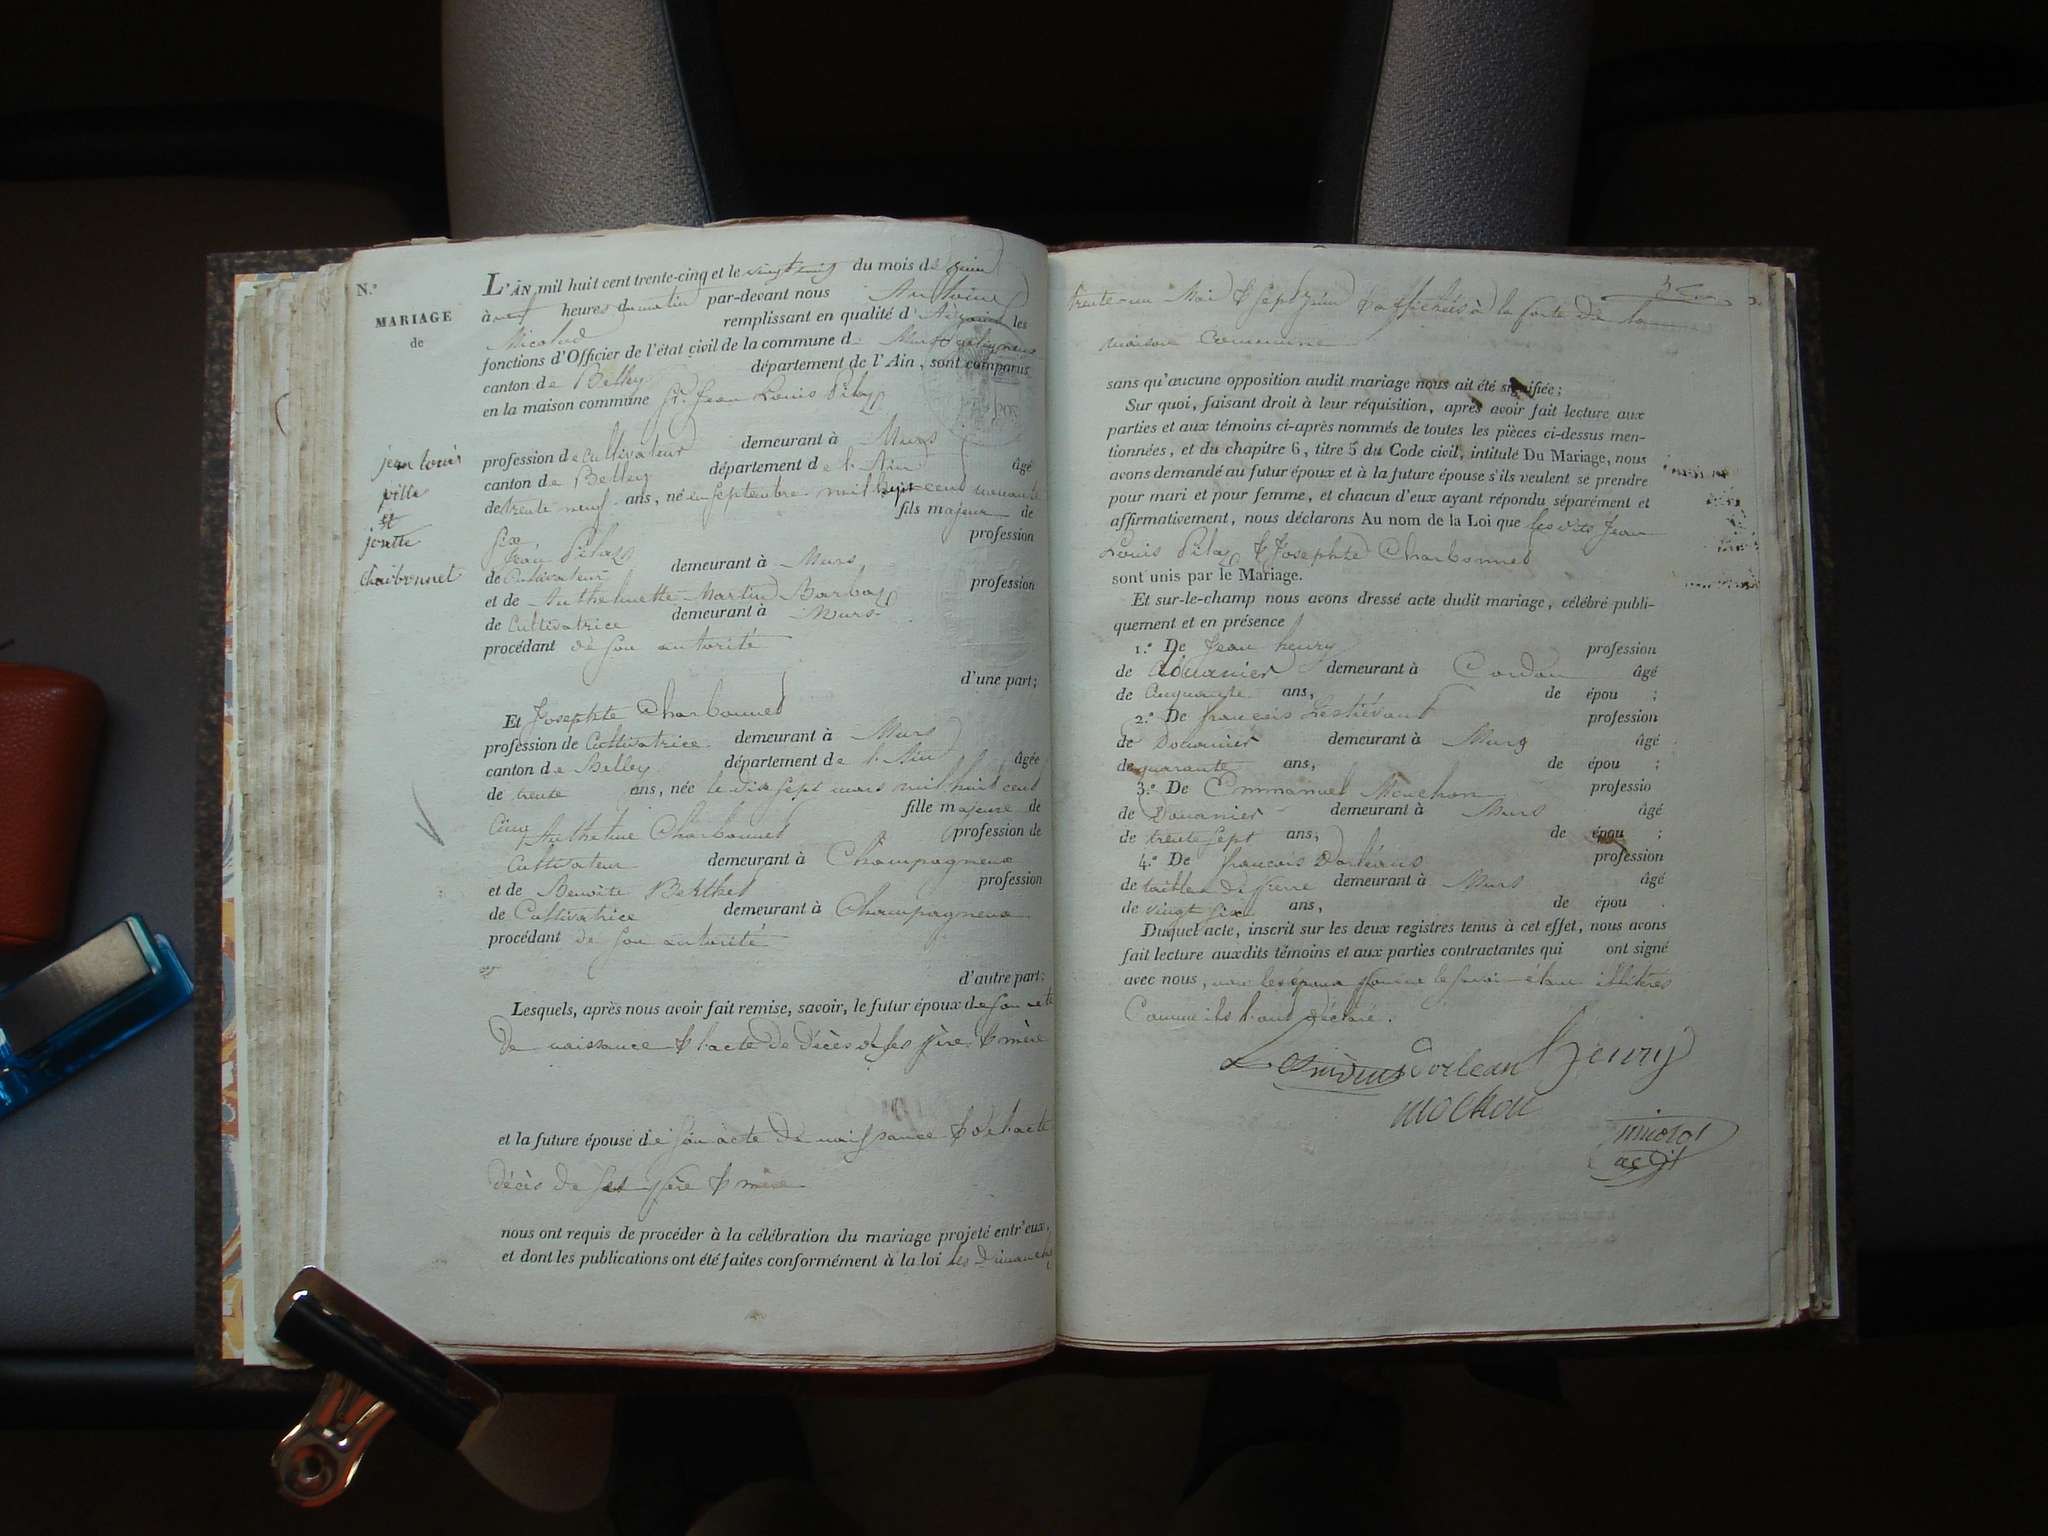 N.°
MARIAGE
de
jean louis
pilla
et
josette
charbonnet
L'AN mil huit cent trente-cinq et le du mois de juin
à neuf heures du matin par-devant nous Antoine
Nicolod remplissant en qualité d' les
fonctions d'Officier de l'état civil de la commune de Murs
canton de Belley département de l'Ain, sont comparus
en la maison commune Sr. Jean Louis Pilaz
profession de Cultivateur demeurant à Murs
canton de Belley département de l'Ain âgé
de trente neuf ans, né en septembre mil sept cent nonante
fils majeur de
six,
Jean Pilaz profession
de Cultivateur demeurant à Murs
et de Anthelmette Martin Barbaz profession
de Cultivatrice demeurant à Murs
procédant de son autorité
d'une part;
Et Josephte Charbonnet
profession de Cultivatrice demeurant à Murs
canton de Belley département de l'Ain âgée
de trente ans, née le dix sept mars mil huit cent
fille majeure de
Cinq Anthelme Charbonnet profession de
Cultivateur demeurant à Champagneux
et de Benoite Berthet profession
de Cultivatrice demeurant à Champagneux
procédant de son autorité
d'autre part;
Lesquels, après nous avoir fait remise, savoir, le futur époux de son acte
De naissance & l'acte de Décès de ses père & mère
et la future épouse de son acte de naissance & de l'acte
décès de ses père & mère
nous ont requis de procéder à la célébration du mariage projeté entr'eux,
et dont les publications ont été faites conformément à la loi les Dimanches
trente un Mai & sept Juin & affichées à la porte de la
maison Commune
sans qu'aucune opposition audit mariage nous ait été signifiée;
Sur quoi, faisant droit à leur réquisition, après avoir fait lecture aux
parties et aux témoins ci-après nommés de toutes les pièces ci-dessus men-
tionnées, et du chapitre 6, titre 5 du Code civil, intitulé Du Mariage, nous
avons demandé au futur époux et à la future épouse s'ils veulent se prendre
pour mari et pour femme, et chacun d'eux ayant répondu séparément et
affirmativement, nous déclarons Au nom de la Loi que les dits Jean
Louis Pilaz & Josephte Charbonnet
sont unis par le Mariage.
Et sur-le-champ nous avons dressé acte dudit mariage, célébré publi-
quement et en présence
1.° De Jean henry profession
de douanier demeurant à Cordon âgé
de cinquante ans, de épou ;
2.° De françois Lestiévant profession
de Douanier demeurant à Murs âgé
de quarante ans, de épou ;
3.° De Emmanuel Mouchon professio
de Douanier demeurant à Murs âgé
de trente sept ans, de épou ;
4.° De françois Dorléans profession
de tailleur de pierre demeurant à Murs âgé
de vingt six ans, de épou
Duquel acte, inscrit sur les deux registres tenus à cet effet, nous avons
fait lecture auxdits témoins et aux parties contractantes qui ont signé
avec nous, non les époux pour ne le savoir étant illitérés
Comme ils l'ont déclaré.
Dorlean henry
mochon
nicolod